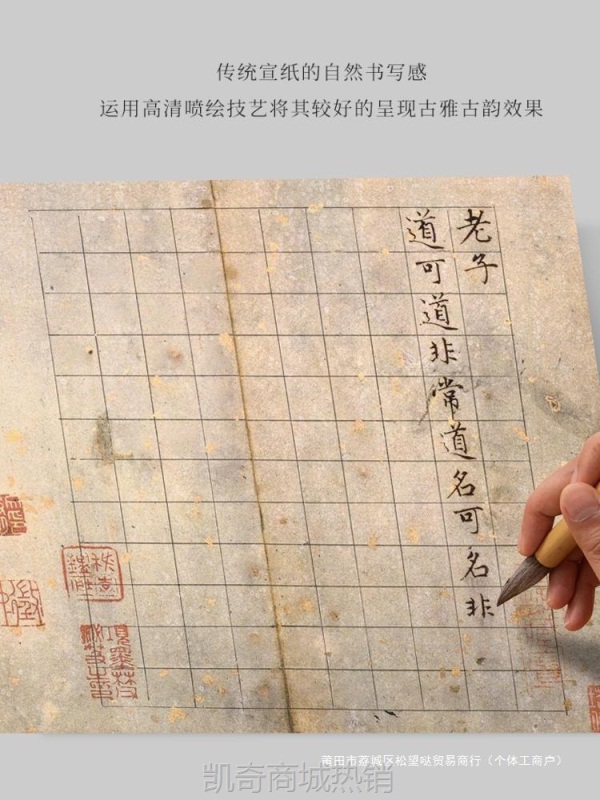 传统宣纸的自然书写感
运用高清喷绘技艺将其较好的呈现古雅古韵效果
老子
道可道非常道名可名非
莆田市荔城区松望哒贸易商行（个体工商户）
凯奇商城热销